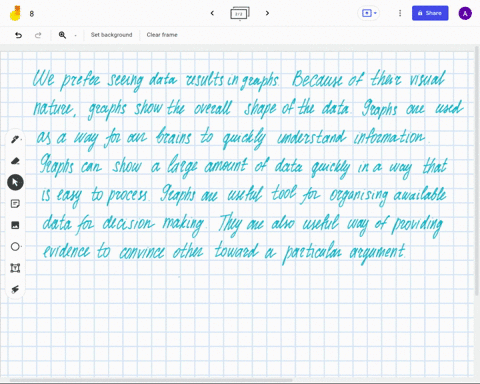 8
Share
A
Set background
Clear frame
We prefer seeing data results in graphs. Because of their visual
nature, graphs show the overall shape of the data. Graphs are used
as a way for our brains to quickly understand information
Graphs can show a large amount of data quickly in a way that
is easy to process. Graphs are useful tool for organising available
data for decision making. They are also useful way of providing
evidence to convince other toward a particular argument